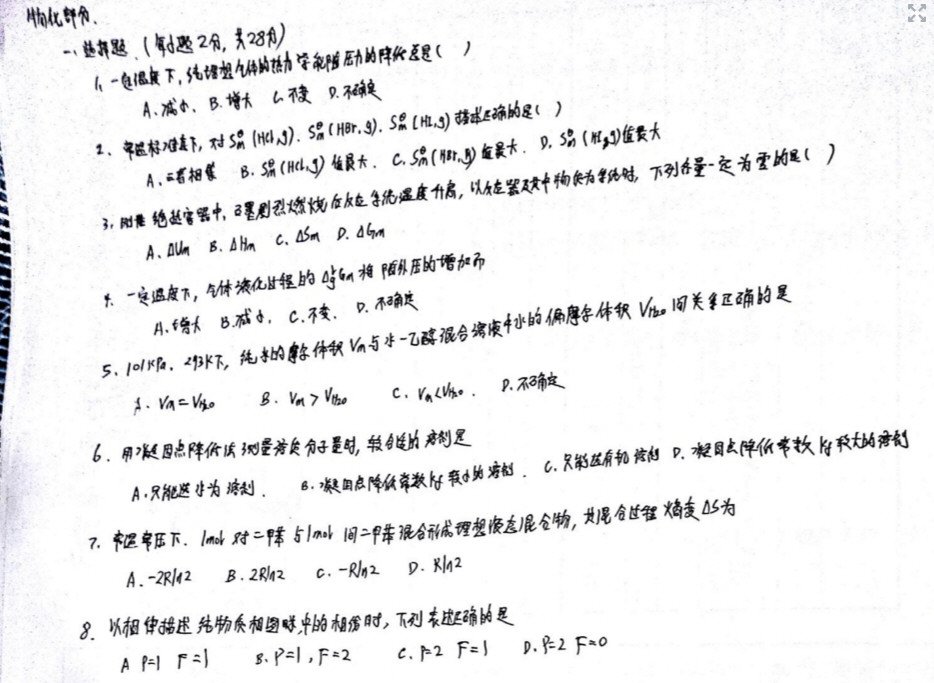 物化部分.
一、选择题.(每小题2分,共28分)
1、一定温度下,纯理想气体的热力学能随压力的降低总是( )
A.减小. B.增大 C.不变 D.不确定
2、常温标准下,对 Sm°(HCl,g). Sm°(HBr,g). Sm°(HI,g)描述正确的是( )
A、三者相等 B. Sm°(HCl,g)值最大. C. Sm°(HBr,g)值最大. D. Sm°(HI,g)值最大
3、刚性绝热容器中,已知剧烈燃烧反应使系统温度升高,以反应器及其中物质为系统时,下列各量一定为零的是( )
A、ΔUm B. ΔHm C. ΔSm D. ΔGm
4. 一定温度下,气体液化过程的 ΔGm 将随外压的增加而
A.增大 B.减小. C.不变. D.不确定
5、101kPa、293K下,纯水的摩尔体积 Vm 与水-乙醇混合溶液中水的偏摩尔体积 VH2O 间关系正确的是
A. Vm = VH2O B. Vm > VH2O C. Vm < VH2O. D.不确定
6、用凝固点降低法测量溶质分子量时,较合适的溶剂是
A.只能选水为溶剂. B.凝固点降低常数kf较小的溶剂. C.只能选有机溶剂 D.凝固点降低常数kf较大的溶剂
7、常温常压下. 1mol 对二甲苯与1mol 间二甲苯混合形成理想液态混合物,其混合过程熵变ΔS为
A. -2Rln2 B. 2Rln2 C. -Rln2 D. Rln2
8. 以相律描述纯物质相图时,下列表述正确的是
A P=1 F=1 B. P=1, F=2 C. P=2 F=1 D. P=2 F=0